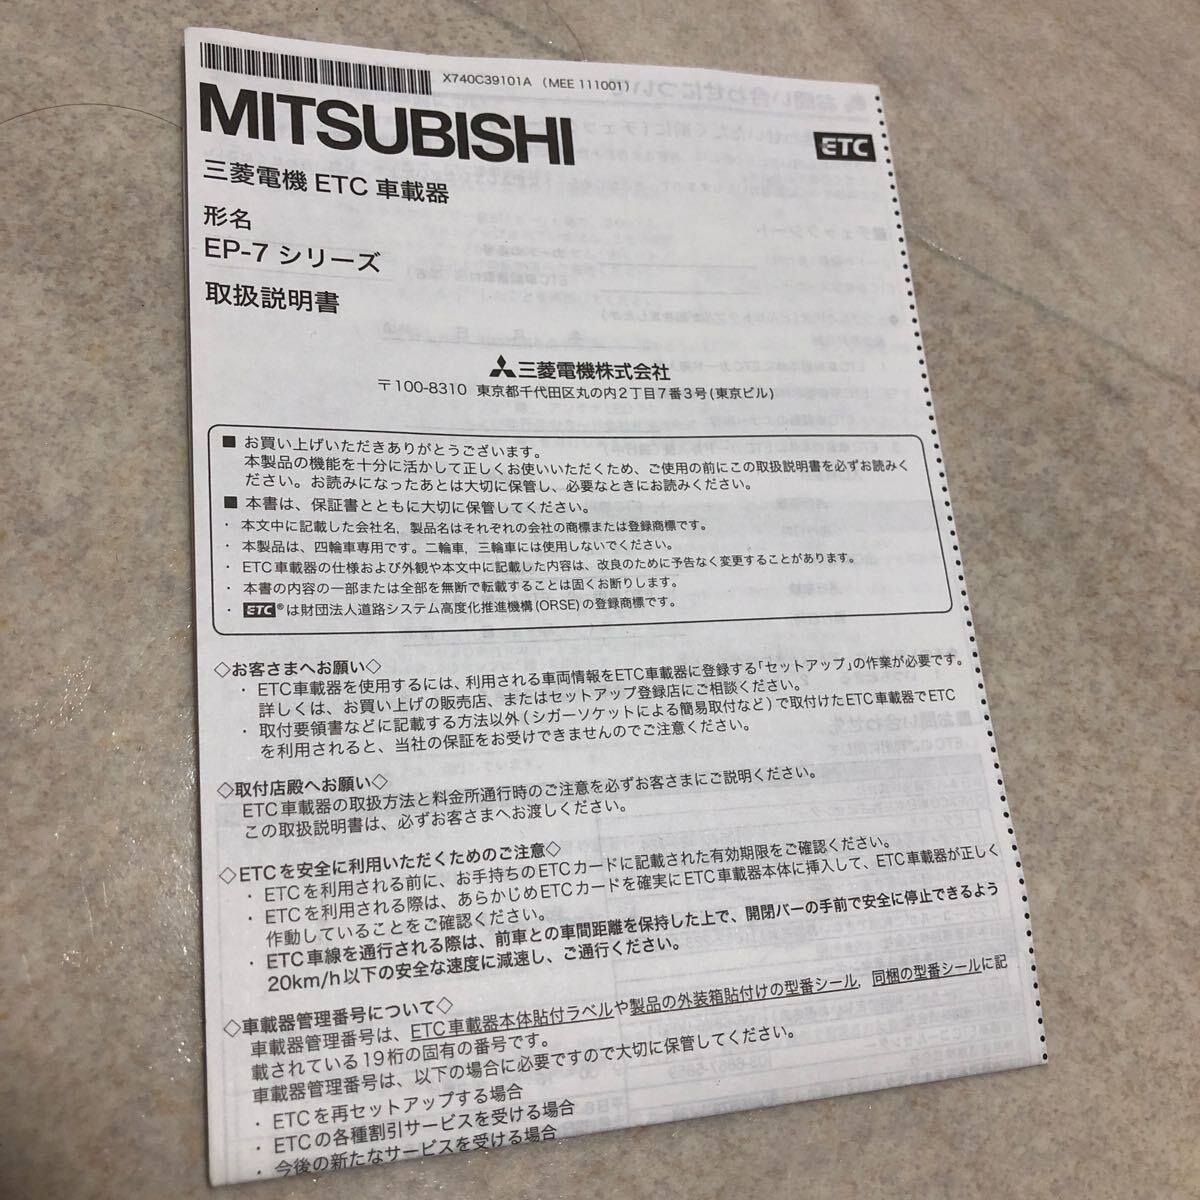 X740C39101A (MEE 111001)
MITSUBISHI
ETC
三菱電機 ETC 車載器
形名
EP-7 シリーズ
取扱説明書
三菱電機株式会社
〒100-8310 東京都千代田区丸の内2丁目7番3号(東京ビル)
■ お買い上げいただきありがとうございます。
本製品の機能を十分に活かして正しくお使いいただくため、ご使用の前にこの取扱説明書を必ずお読みく
ださい。お読みになったあとは大切に保管し、必要なときにお読みください。
■ 本書は、保証書とともに大切に保管してください。
・ 本文中に記載した会社名，製品名はそれぞれの会社の商標または登録商標です。
・ 本製品は、四輪車専用です。二輪車，三輪車には使用しないでください。
・ ETC車載器の仕様および外観や本文中に記載した内容は、改良のために予告なく変更することがあります。
・ 本書の内容の一部または全部を無断で転載することは固くお断りします。
・ ETC®は財団法人道路システム高度化推進機構(ORSE)の登録商標です。
◇お客さまへお願い◇
・ ETC車載器を使用するには、利用される車両情報をETC車載器に登録する「セットアップ」の作業が必要です。
詳しくは、お買い上げの販売店、またはセットアップ登録店にご相談ください。
・ 取付要領書などに記載する方法以外(シガーソケットによる簡易取付など)で取付けたETC車載器でETC
を利用されると、当社の保証をお受けできませんのでご注意ください。
◇取付店殿へお願い◇
ETC車載器の取扱方法と料金所通行時のご注意を必ずお客さまにご説明ください。
この取扱説明書は、必ずお客さまへお渡しください。
◇ETCを安全に利用いただくためのご注意◇
・ ETCを利用される前に、お手持ちのETCカードに記載された有効期限をご確認ください。
・ ETCを利用される際は、あらかじめETCカードを確実にETC車載器本体に挿入して、ETC車載器が正しく
作動していることをご確認ください。
・ ETC車線を通行される際は、前車との車間距離を保持した上で、開閉バーの手前で安全に停止できるよう
20km/h以下の安全な速度に減速し、ご通行ください。
◇車載器管理番号について◇
車載器管理番号は、ETC車載器本体貼付ラベルや製品の外装箱貼付けの型番シール，同梱の型番シールに記
載されている19桁の固有の番号です。
車載器管理番号は、以下の場合に必要ですので大切に保管してください。
・ ETCを再セットアップする場合
・ ETCの各種割引サービスを受ける場合
・ 今後の新たなサービスを受ける場合